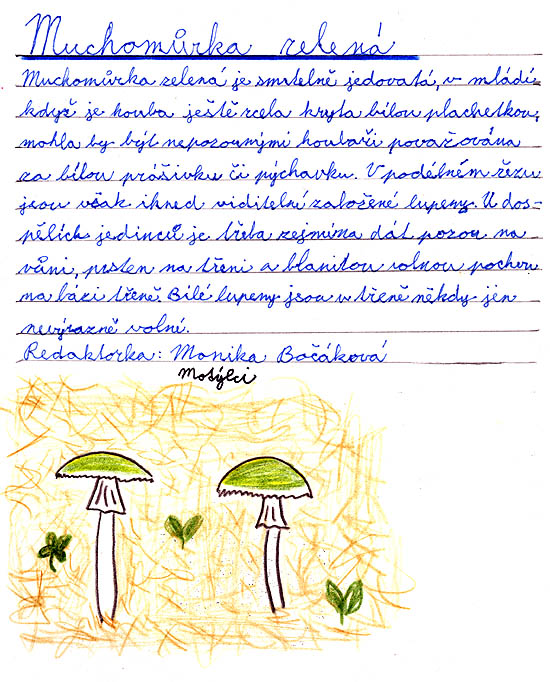 Muchomůrka zelená
Muchomůrka zelená je smrtelně jedovatá, v mládí
když je houba ještě zcela kryta bílou plachetkou,
mohla by být nepozornými houbaři považována
za bílou prášivku či pýchavku. V podélném řezu
jsou však ihned viditelné založené lupeny. U dos-
pělích jedinců je třeba zejména dát pozor na
vůni, prsten na třeni a blanitou volnou pochvu
na bázi třeně. Bílé lupeny jsou u třeně někdy jen
nevýrazně volné.
Redaktorka: Monika Bočáková
Motýlci